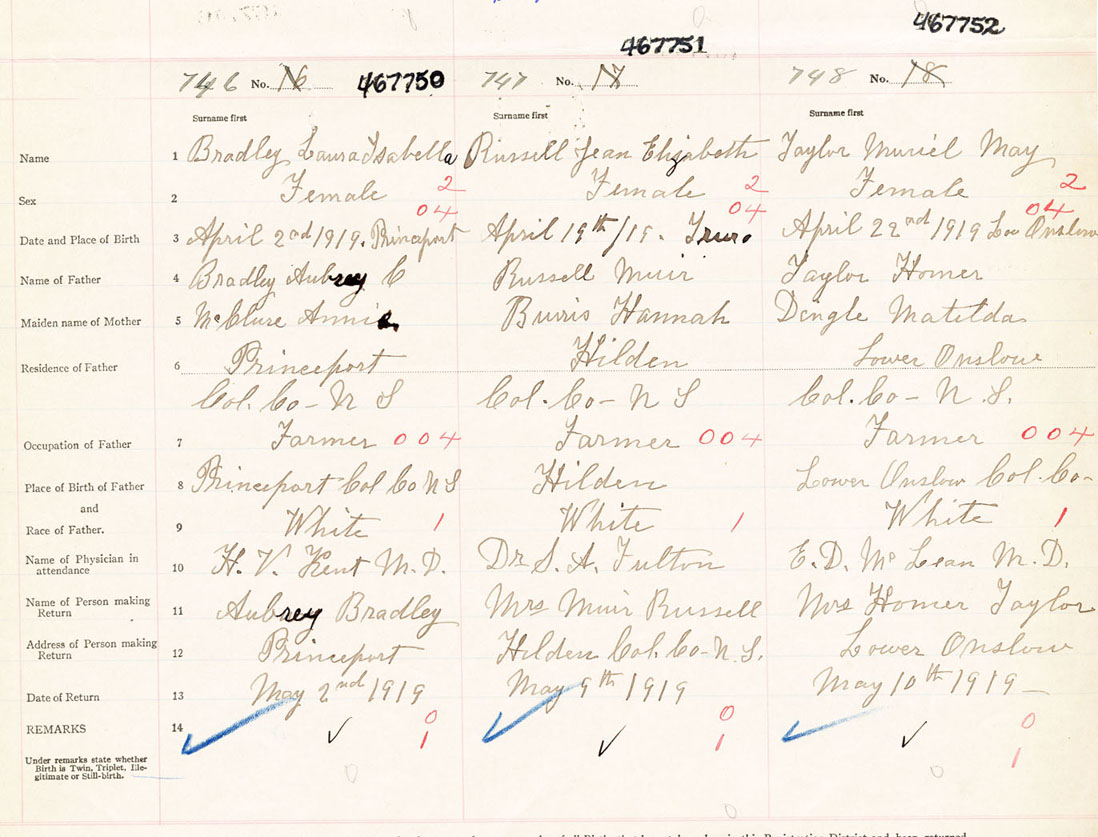 467752
467751
746 No. 16 467750 747 No. 17 748 No. 18
Surname first Surname first Surname first
Name 1 Bradley Laura Isabella Russell Jean Elizabeth Taylor Muriel May
Sex 2 Female 2 Female 2 Female 2
04 04 04
Date and Place of Birth 3 April 2nd 1919. Princeport April 19th/19. Truro April 22nd 1919 Lo Onslow
Name of Father 4 Bradley Aubrey C Russell Muir Taylor Homer
Maiden name of Mother 5 McClure Annie Burris Hannah Dingle Matilda
Residence of Father 6 Princeport Hilden Lower Onslow
Col. Co - N S Col. Co - N S Col. Co - N.S.
Occupation of Father 7 Farmer 004 Farmer 004 Farmer 004
Place of Birth of Father 8 Princeport Col Co N S Hilden Lower Onslow Col. Co -
and
Race of Father. 9 White 1 White 1 White 1
Name of Physician in
attendance 10 H. V. Kent M.D. Dr S. A. Fulton E. D. McLean M.D.
Name of Person making
Return 11 Aubrey Bradley Mrs Muir Russell Mrs Homer Taylor
Address of Person making
Return 12 Princeport Hilden Col. Co - N.S. Lower Onslow
Date of Return 13 May 2nd 1919 May 9th 1919 May 10th 1919 -
REMARKS 14 0 0 0
1 1 1
Under remarks state whether
Birth is Twin, Triplet, Ille-
gitimate or Still-birth.